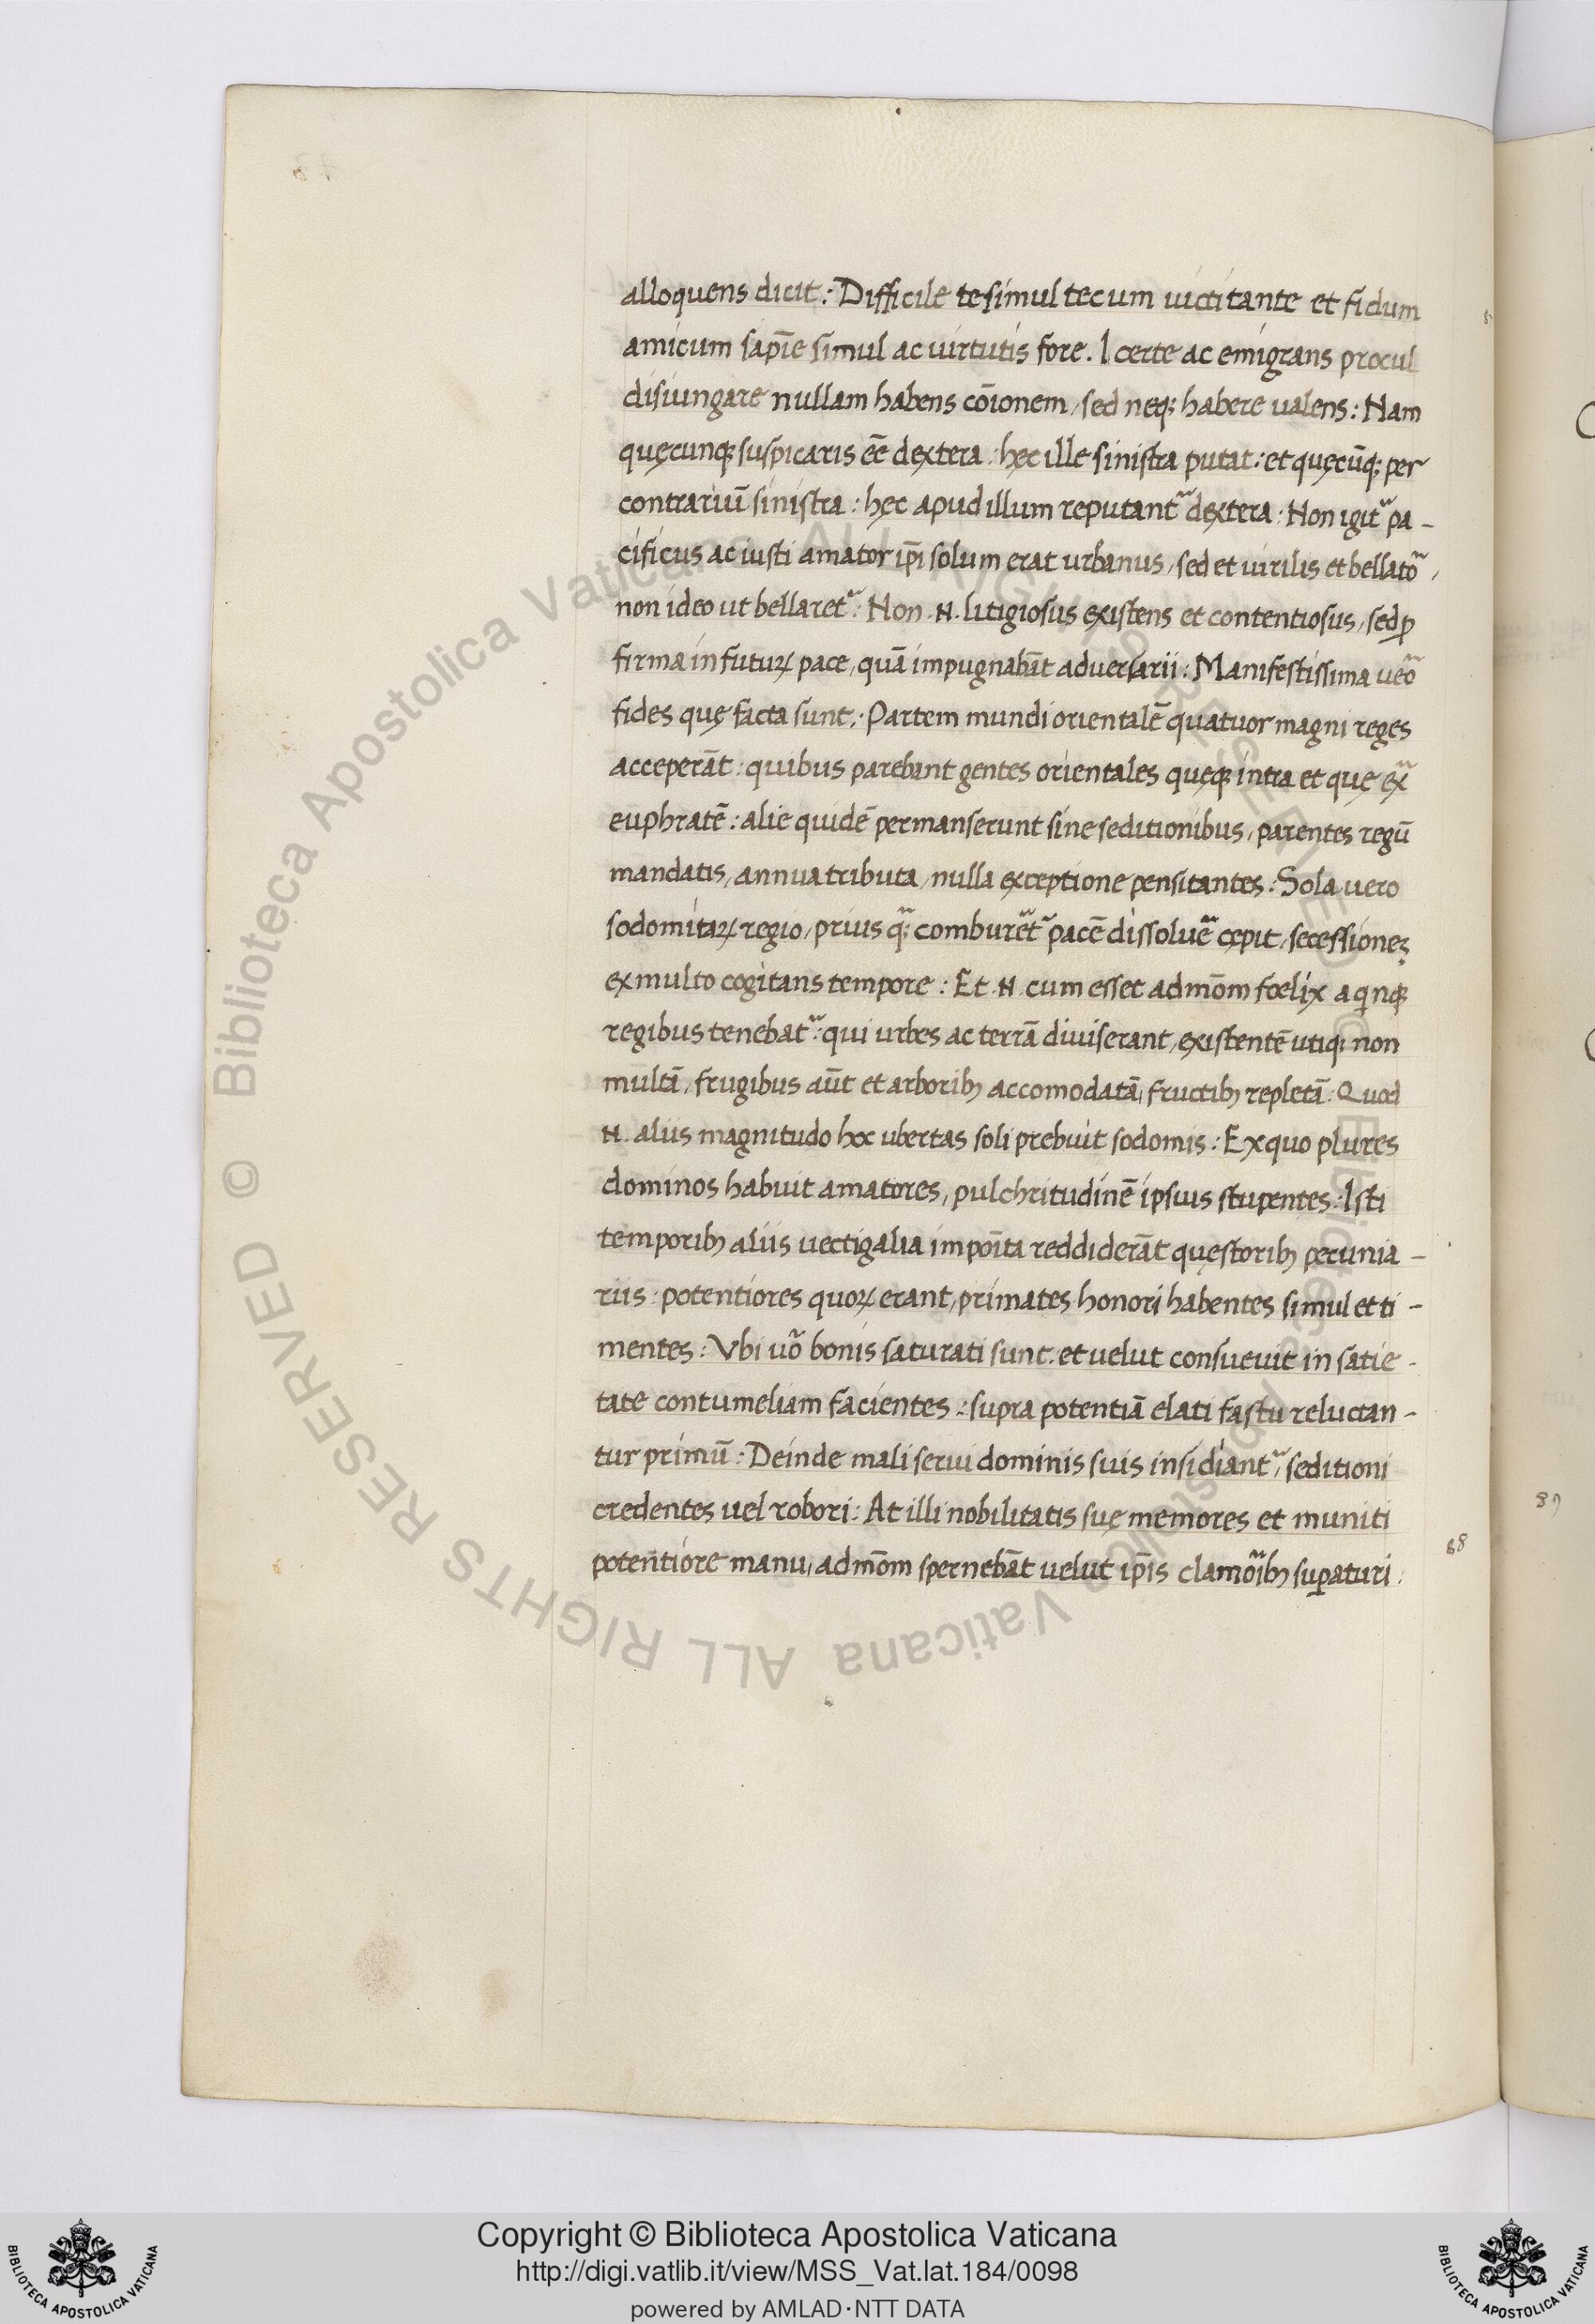 alloquens dicit: Difficile te simul tecum uictitante et fidum
amicum sapīe simul ac uirtutis fore. I certe ac emigrans procul
disiungare nullam habens cōionem, sed neq; habere ualens: Nam
quęcunq; suspicaris eē dextera: hęc ille sinistra putat: et quęcūq; per
contrariū sinistra: hęc apud illum reputantᷣ dextera: Non igitᷣ pa-
cificus ac iusti amator ip̄i solum erat urbanus, sed et uirilis et bellatõ,
non ideo ut bellaretᷣ: Non .N. litigiosus existens et contentiosus, sed ꝓ
firma in futuꝝ pace, quā impugnabāt aduersarii: Manifestissima ueõ
fides quę facta sunt: Partem mundi orientalē quatuor magni reges
acceperāt: quibus parebant gentes orientales quęq; intra et quę ex̃
euphratē: alie quidē permanserunt sine seditionibus, parentes regū
mandatis, annua tributa, nulla exceptione pensitantes: Sola uero
sodomitaꝝ regio, prius q̃; comburẽtᷣ pacē dissoluẽ cępit, secessiones
ex multo cogitans tempore: Et .N. cum esset admōm foelix a qinq;
regibus tenebatᷣ: qui urbes ac terrā diuiserant, existentē utiq; non
multā, frugibus aūt et arborib; accomodatā, fructib; repletā: Quod
.N. aliis magnitudo hoc ubertas soli prebuit sodomis: Ex quo plures
dominos habuit amatores, pulchritudinē ipsius stupentes: Isti
temporib; aliis uectigalia impoīta reddiderāt quęstorib; pecunia-
riis: potentiores quoꝝ erant, primates honori habentes simul et ti-
mentes: Vbi uõ bonis saturati sunt: et uelut consueuit in satie-
tate contumeliam facientes: supra potentiā elati fastu reluctan-
tur primū: Deinde mali serui dominis suis insidiantᷣ, seditioni
credentes uel robori: At illi nobilitatis suę memores et muniti
potentiore manu, admōm spernebāt uelut ip̄is clamõib; suꝑaturi:
89
88
Biblioteca Apostolica Vaticana ALL RIGHTS RESERVED ©
Copyright © Biblioteca Apostolica Vaticana
http://digi.vatlib.it/view/MSS_Vat.lat.184/0098
powered by AMLAD·NTT DATA
BIBLIOTECA APOSTOLICA VATICANA
BIBLIOTECA APOSTOLICA VATICANA